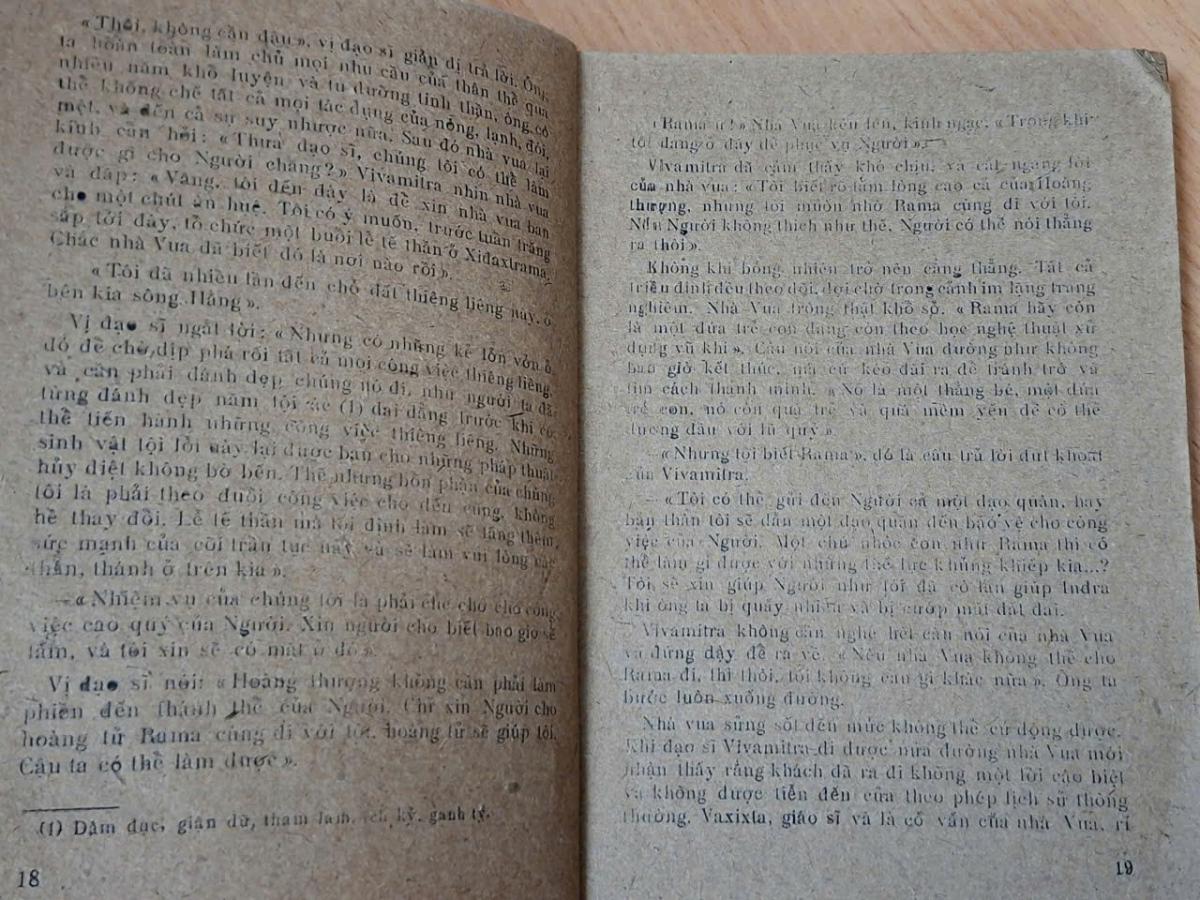 « Thôi, không cần đâu », vị đạo sĩ giản dị trả lời. Ông
ta hoàn toàn làm chủ mọi nhu cầu của thân thể qua
nhiều năm khổ luyện và tu dưỡng tinh thần, ông có
thể khống chế tất cả mọi tác dụng của nóng, lạnh, đói,
mệt, và đến cả sự suy nhược nữa. Sau đó nhà vua lại
kính cẩn hỏi : « Thưa đạo sĩ, chúng tôi có thể làm
được gì cho Người chăng? » Vivamitra nhìn nhà vua
và đáp: « Vâng, tôi đến đây là để xin nhà vua ban
cho một chút ân huệ. Tôi có ý muốn, trước tuần trăng
sắp tới đây, tổ chức một buổi lễ tế thần ở Xiđaxtrama.
Chắc nhà Vua đã biết đó là nơi nào rồi ».
« Tôi đã nhiều lần đến chỗ đất thiêng liêng này, ở
bên kia sông Hằng ».
Vị đạo sĩ ngắt lời : « Nhưng có những kẻ lởn vởn ở
đó để chờ dịp phá rối tất cả mọi công việc thiêng liêng,
và cần phải đánh dẹp chúng nó đi, như người ta đã
từng đánh dẹp năm tội ác (1) dai dẳng trước khi có
thể tiến hành những công việc thiêng liêng. Những
sinh vật tội lỗi này lại được ban cho những pháp thuật
hủy diệt không bờ bến. Thế nhưng bổn phận của chúng
tôi là phải theo đuổi công việc cho đến cùng, không
hề thay đổi. Lễ tế thần mà tôi định làm sẽ tăng thêm
sức mạnh của cõi trần tục này và sẽ làm vui lòng các
thần, thánh ở trên kia ».
— « Nhiệm vụ của chúng tôi là phải che chở cho công
việc cao quý của Người. Xin người cho biết bao giờ sẽ
làm, và tôi xin sẽ có mặt ở đó ».
Vị đạo sĩ nói: « Hoàng thượng không cần phải làm
phiền đến thánh thể của Người. Chỉ xin Người cho
hoàng tử Rama cùng đi với tôi, hoàng tử sẽ giúp tôi.
Cậu ta có thể làm được ».
(1) Dâm dục, giận dữ, tham lam, ích kỷ, ganh tỵ.
18
« Rama ư? » Nhà Vua kêu lên, kinh ngạc, « Trong khi
tôi đang ở đây để phục vụ Người ».
Vivamitra đã cảm thấy khó chịu, và cắt ngang lời
của nhà vua : « Tôi biết rõ tấm lòng cao cả của Hoàng
thượng, nhưng tôi muốn nhờ Rama cùng đi với tôi.
Nếu Người không thích như thế, Người có thể nói thẳng
ra thôi ».
Không khí bỗng nhiên trở nên căng thẳng. Tất cả
triều đình đều theo dõi, đợi chờ trong cảnh im lặng trang
nghiêm. Nhà Vua trông thật khổ sở. « Rama hãy còn
là một đứa trẻ con đang còn theo học nghệ thuật sử
dụng vũ khí ». Câu nói của nhà Vua dường như không
bao giờ kết thúc, mà cứ kéo dài ra để tránh trở và
tìm cách thanh minh. « Nó là một thằng bé, một đứa
trẻ con, nó còn quá trẻ và quá mềm yếu để có thể
đương đầu với lũ quỷ ».
— « Nhưng tôi biết Rama », đó là câu trả lời dứt khoát
của Vivamitra.
— « Tôi có thể gửi đến Người cả một đạo quân, hay
bản thân tôi sẽ dẫn một đạo quân đến bảo vệ cho công
việc của Người. Một chú nhóc con như Rama thì có
thể làm gì được với những thế lực khủng khiếp kia...?
Tôi sẽ xin giúp Người như tôi đã có lần giúp Indra
khi ông ta bị quấy nhiễu và bị cướp mất đất đai.
Vivamitra không cần nghe hết câu nói của nhà Vua
và đứng dậy để ra về. « Nếu nhà Vua không thể cho
Rama đi, thì thôi, tôi không cần gì khác nữa ». Ông ta
bước luôn xuống đường.
Nhà vua sửng sốt đến mức không thể cử động được.
Khi đạo sĩ Vivamitra đi được nửa đường nhà Vua mới
nhận thấy rằng khách đã ra đi không một lời cáo biệt
và không được tiễn đến cửa theo phép lịch sự thông
thường. Vaxixta, giáo sĩ và là cố vấn của nhà Vua, rỉ
19